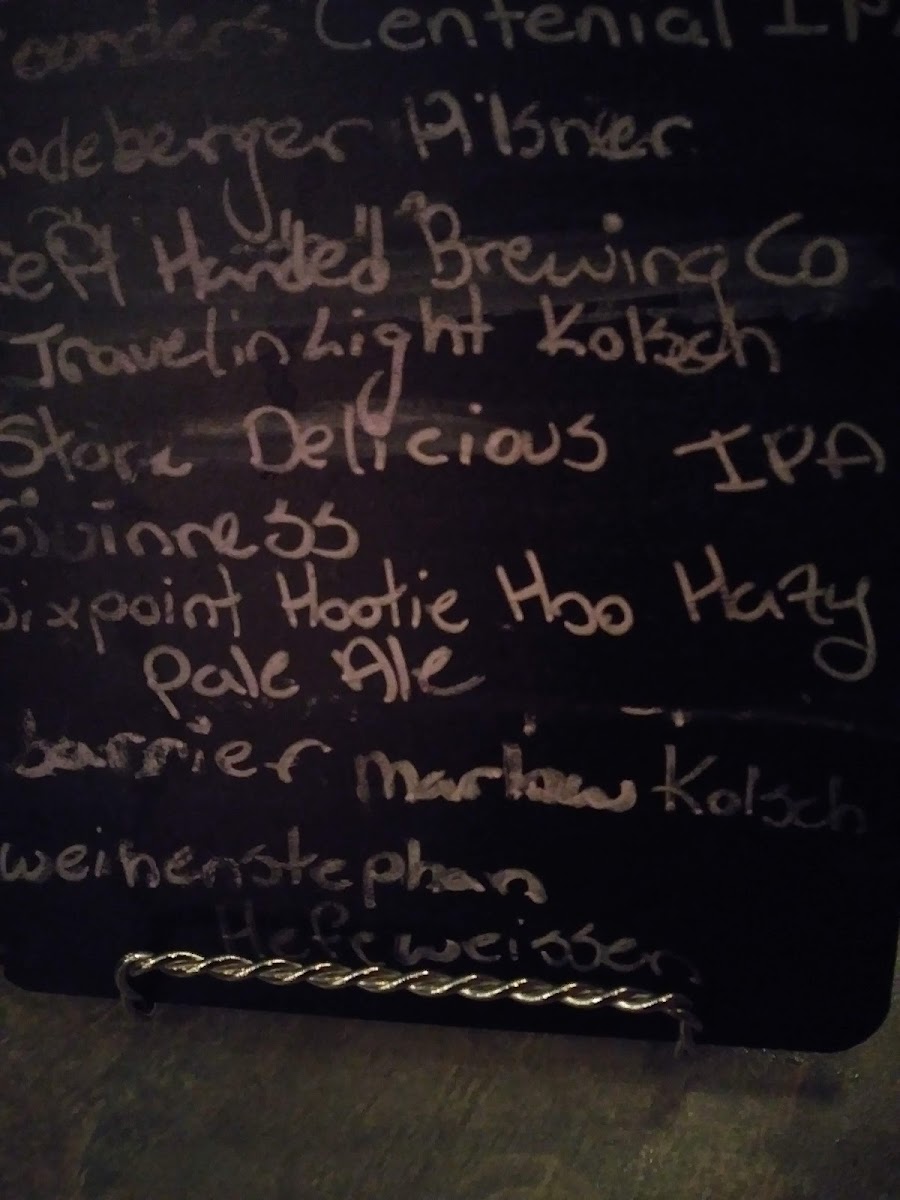 ounders Centenial IPA
odeberger Pilsner
Left Handed Brewing Co
Travelin Light Kolsch
Stone Delicious IPA
Guinness
Sixpoint Hootie Hoo Hazy
pale Ale
barrier Kolsch
weihenstephan
Hefeweissen